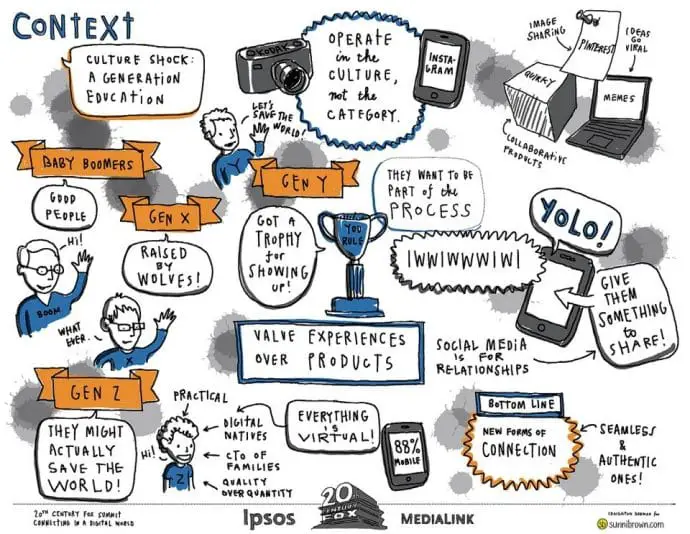 CONTEXT
CULTURE SHOCK:
A GENERATION
EDUCATION
KODAK
OPERATE
in the
CULTURE,
not the
CATEGORY.
INSTA-
GRAM
IMAGE
SHARING
PINTEREST
IDEAS
GO
VIRAL
QUIRKY
MEMES
COLLABORATIVE
PRODUCTS
LET'S
SAVE THE
WORLD!
Y
BABY BOOMERS
GOOD
PEOPLE
HI!
BOOM
GEN X
RAISED
BY
WOLVES!
WHAT
EVER..
X
GEN Y
GOT A
TROPHY
for
SHOWING
UP!
YOU
RULE
THEY WANT TO BE
PART of the
PROCESS
IWWIWWWIWI
YOLO!
GIVE
THEM
SOMETHING
to
SHARE!
SOCIAL MEDIA
IS FOR
RELATIONSHIPS
VALUE EXPERIENCES
OVER PRODUCTS
GEN Z
THEY MIGHT
ACTUALLY
SAVE THE
WORLD!
HI!
Z
PRACTICAL
DIGITAL
NATIVES
CTO OF
FAMILIES
QUALITY
OVER QUANTITY
EVERYTHING
IS
VIRTUAL!
88%
MOBILE
BOTTOM LINE
NEW FORMS OF
CONNECTION
SEAMLESS
&
AUTHENTIC
ONES!
20TH CENTURY FOX SUMMIT
CONNECTING IN A DIGITAL WORLD
Ipsos
20
CENTURY
FOX
MEDIALINK
for
sb
sunnibrown.com